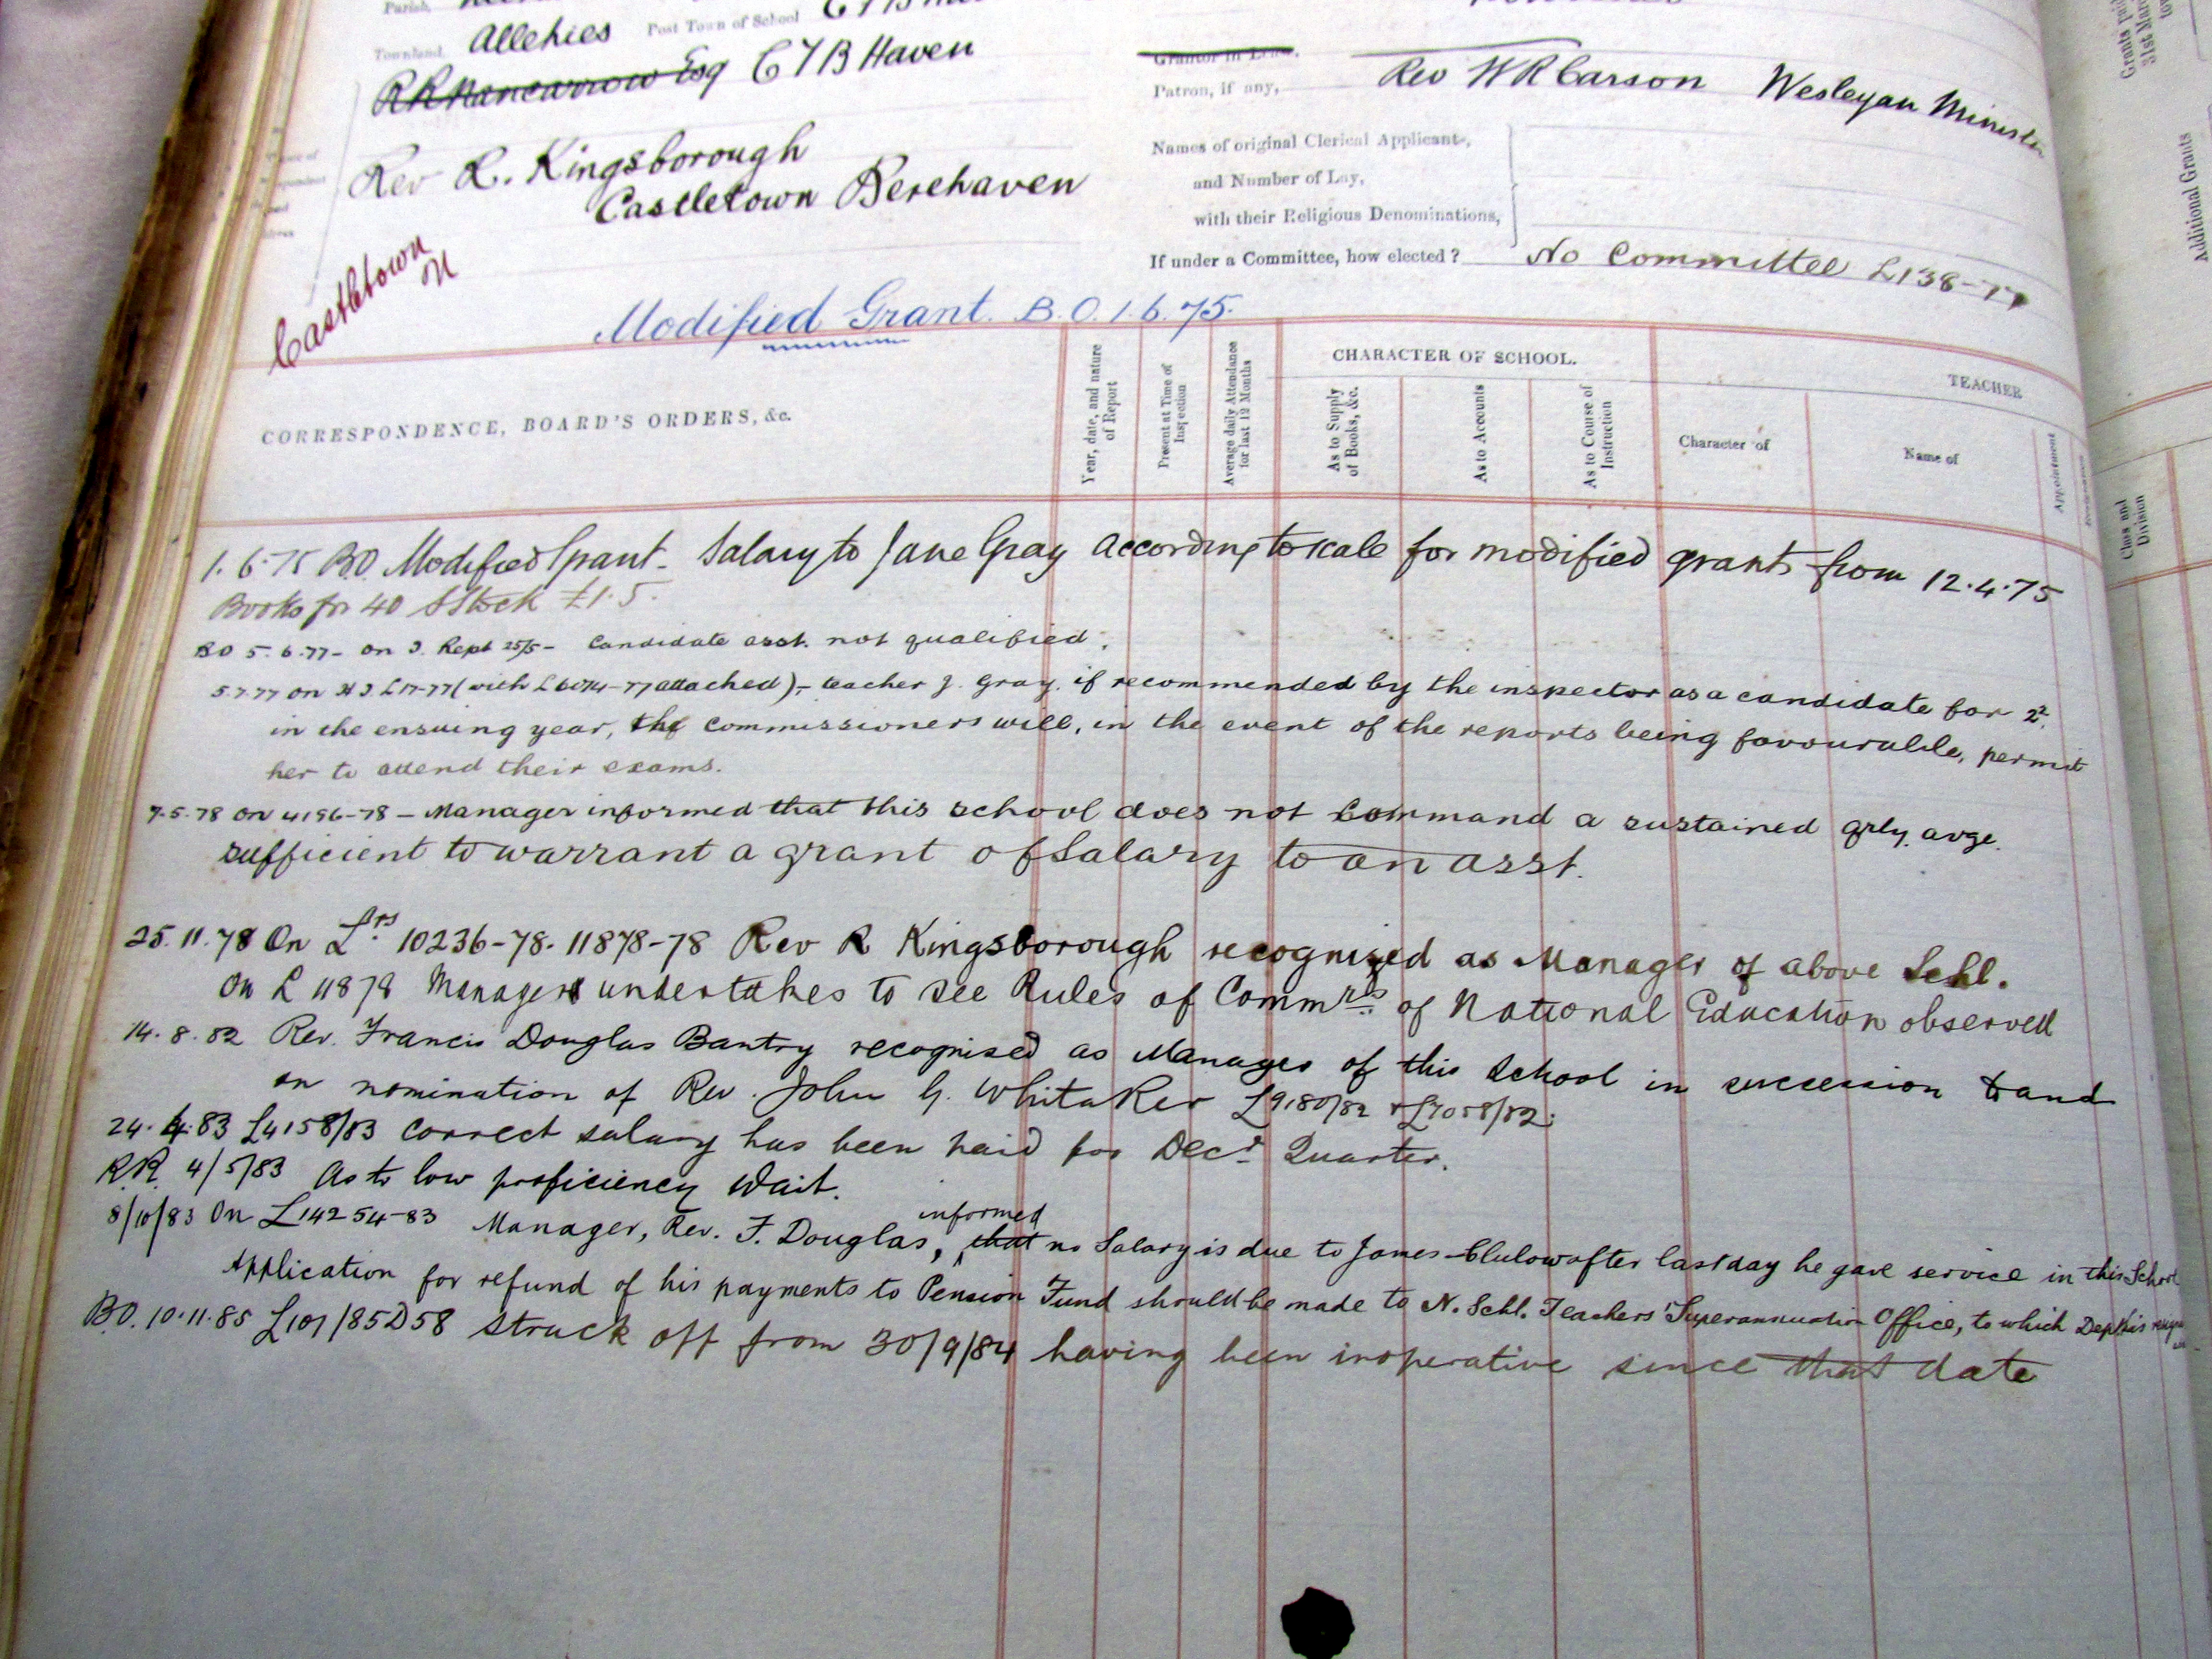 Parish,
Townland, Allehies Post Town of School C T B
R R Nancarrow Esq C T B Haven
Rev R. Kingsborough
Castletown Berehaven
Castletown
Patron, if any, Rev W R Carson Wesleyan Minister
Names of original Clerical Applicants,
and Number of Lay,
with their Religious Denominations,
If under a Committee, how elected? No Committee L138-77
Modified Grant. B.O. 1.6.75.
CORRESPONDENCE, BOARD'S ORDERS, &c.
Year, date, and nature of Report
Present at Time of Inspection
Average daily Attendance for last 12 Months
CHARACTER OF SCHOOL.
As to Supply of Books, &c.
As to Accounts
As to Course of Instruction
TEACHER
Character of
Name of
Appointment
Class and Division
Additional Grants
1.6.75 B.O. Modified Grant - Salary to Jane Gray according to scale for modified grants from 12.4.75
Books for 40 S Stock £1.5.
BO 5.6.77 - on I. Rept 25/5 - Candidate asst. not qualified.
5.7.77 on (with attached) - teacher J. Gray, if recommended by the inspector as a candidate for 2²
in the ensuing year, the Commissioners will, in the event of the reports being favourable, permit
her to attend their exams.
7.5.78 on 4196-78 - Manager informed that this school does not command a sustained qrly. avge.
sufficient to warrant a grant of Salary to an asst.
25.11.78 On Lrs 10236-78. 11878-78 Rev R Kingsborough recognized as Manager of above Schl.
On L 11878 Manager undertakes to see Rules of Commrs. of National Education observed
14.8.82 Rev. Francis Douglas Bantry recognised as Manager of this School in succession to and
on nomination of Rev. John G. Whitaker L9180/82 & L7058/82.
24.4.83 L4158/83 Correct salary has been paid for Decr Quarter.
R.R. 4/5/83 As to low proficiency Wait.
8/10/83 On L14254-83 Manager, Rev. F. Douglas, informed that no Salary is due to James Clulow after last day he gave service in this School
Application for refund of his payments to Pension Fund should be made to N. Schl. Teachers' Superannuation Office, to which Dept.
B.O. 10.11.85 L101/85 D58 Struck off from 30/9/84 having been inoperative since that date